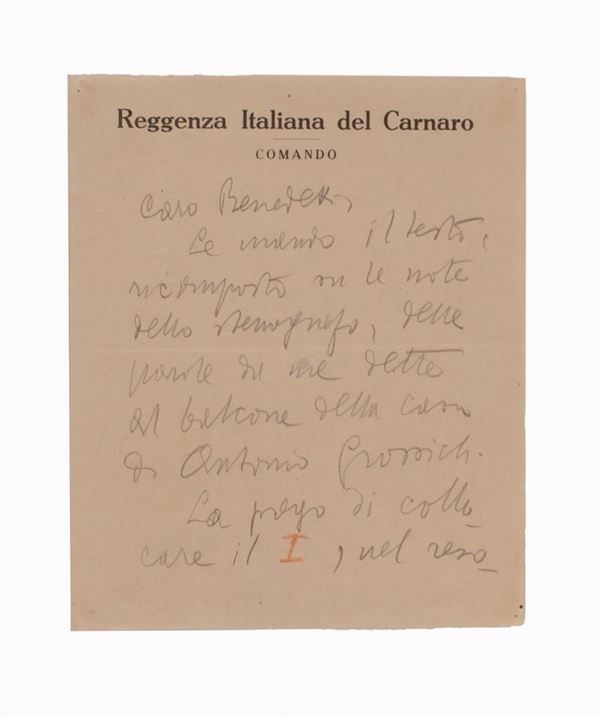 Reggenza Italiana del Carnaro
COMANDO
Caro Benedetti,
Le mando il testo,
ricomposto su le note
dello stenografo, delle
parole da me dette
al balcone della casa
di Antonio Grossich.
La prego di collo
care il I, nel reso